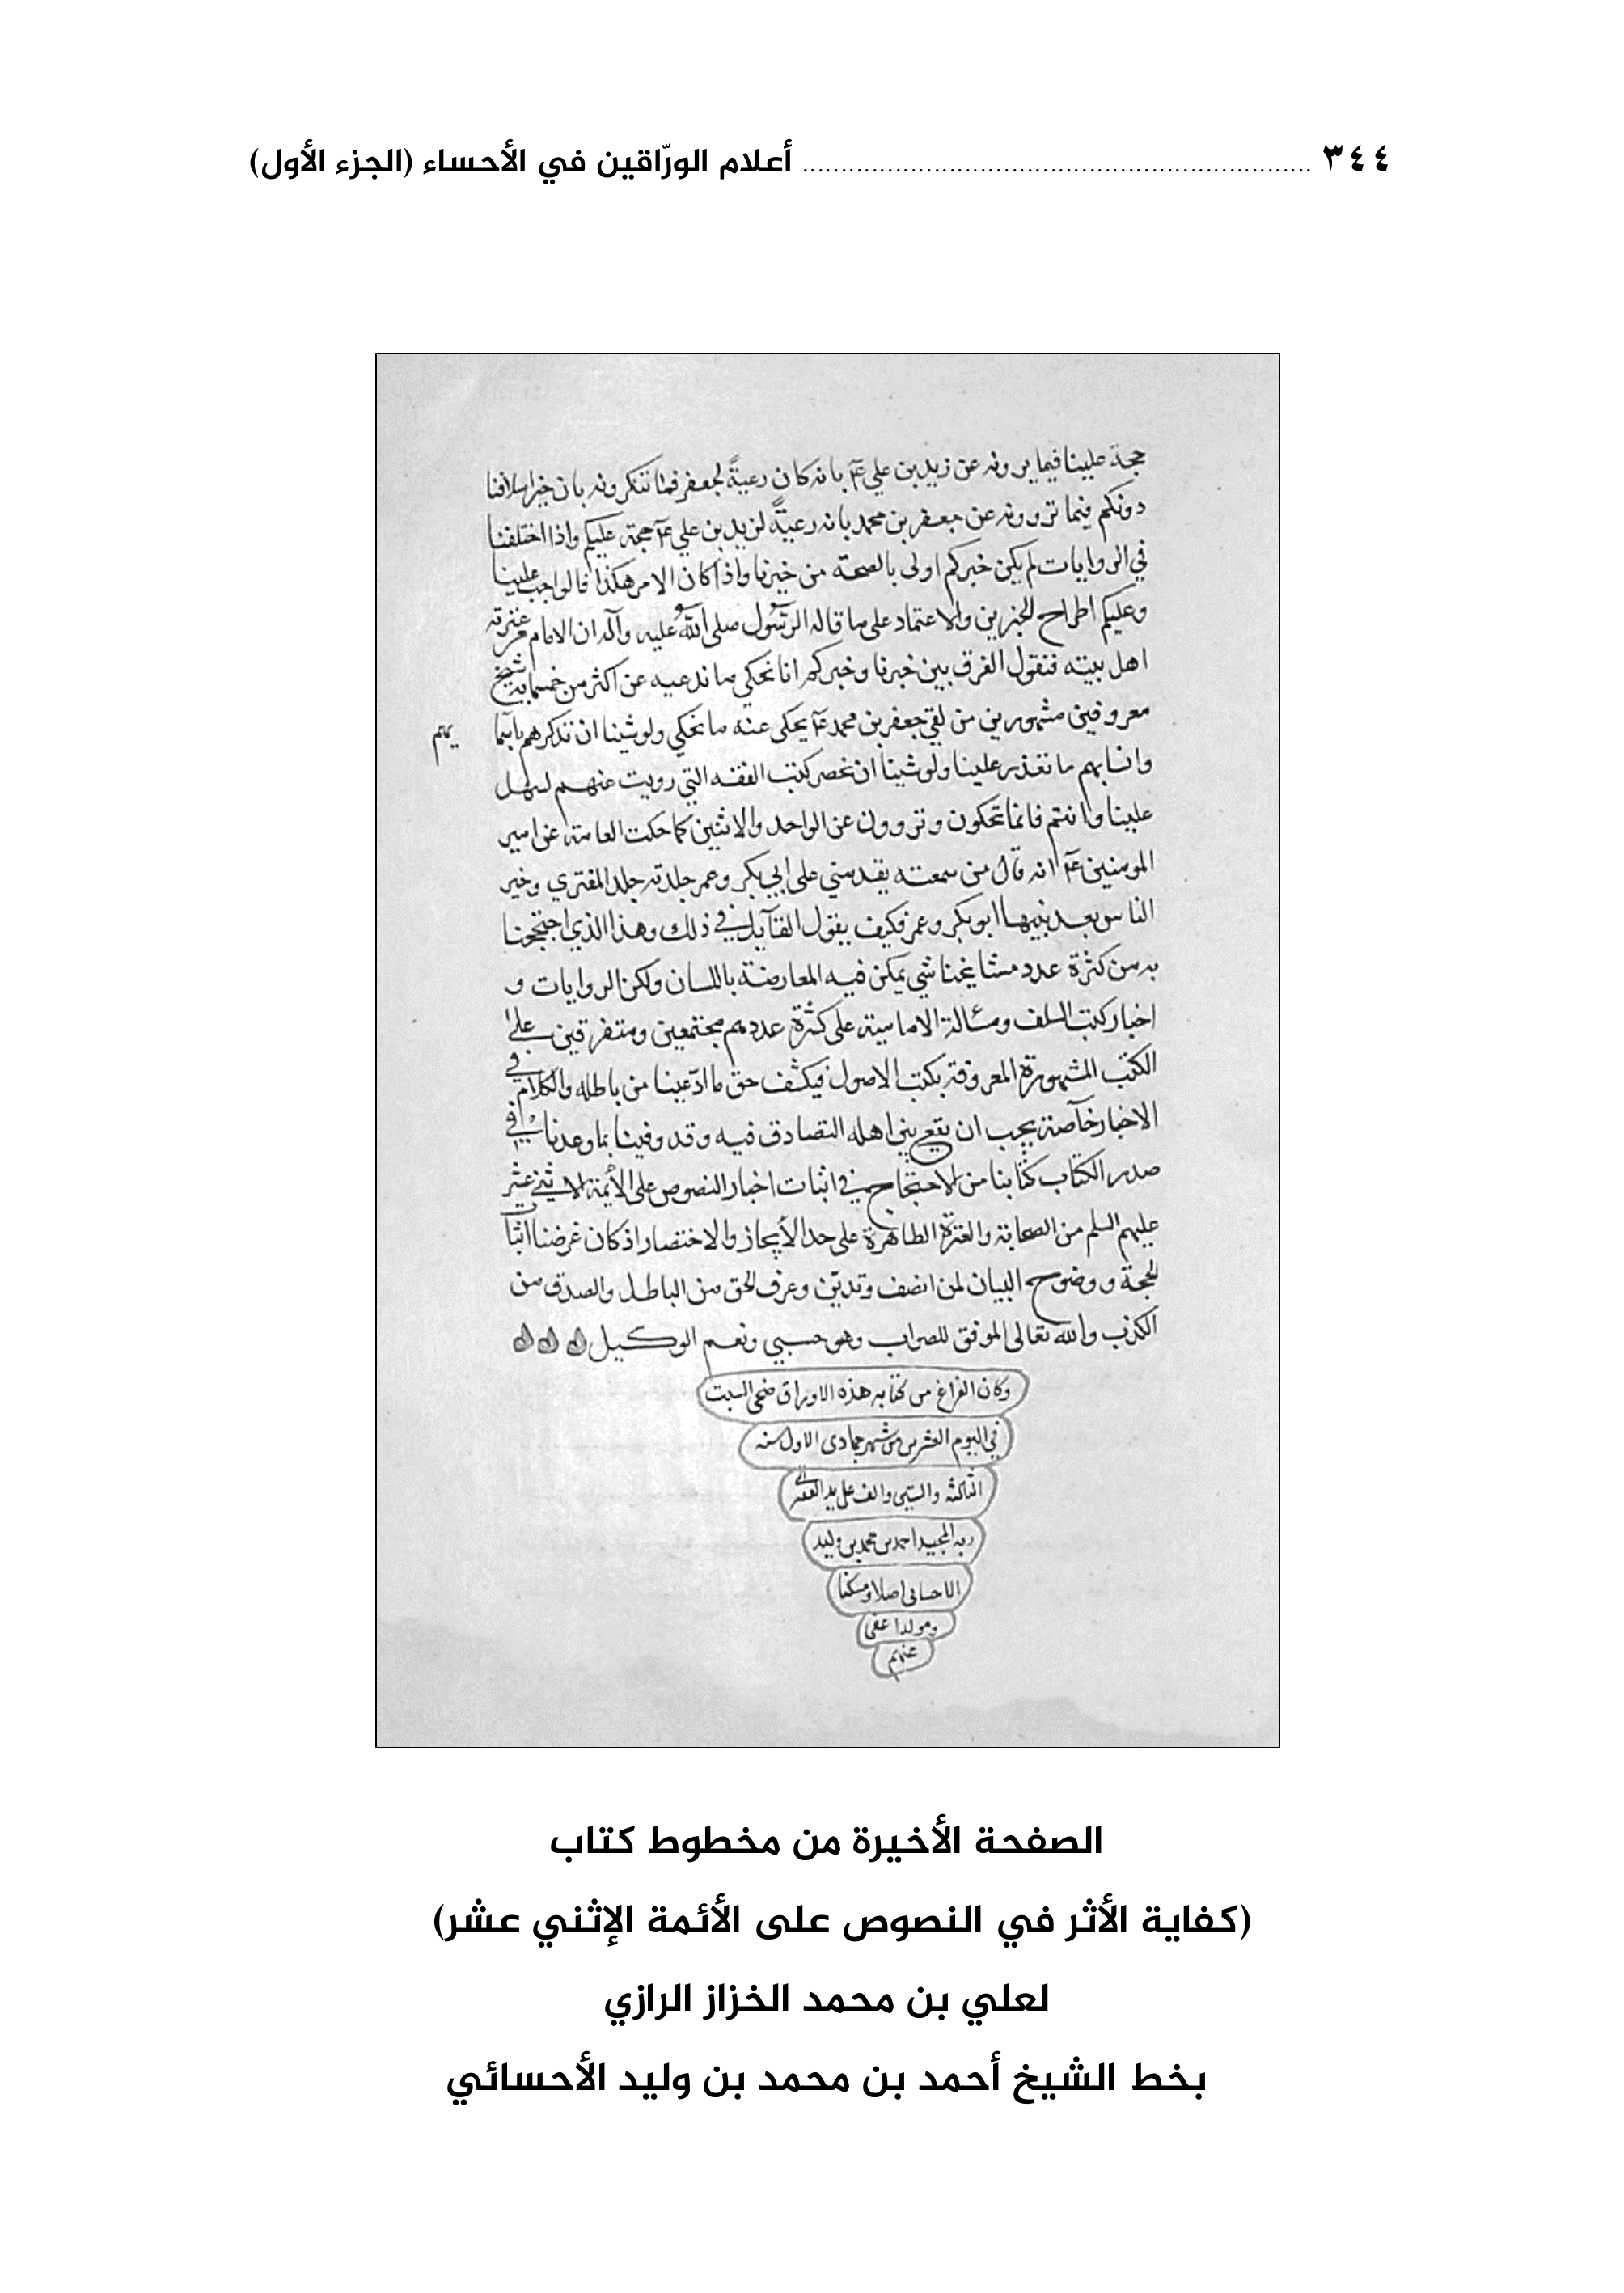 ٣٤٤ ................................................................ أعلام الورّاقين في الأحساء (الجزء الأول)
حجة علينا فيما يروونه عن زيد بن علي عم بانه كان رعيةً لجعفر فما تنكرونه بان خبر اسلافنا
دونكم فيما تروونه عن جعفر بن محمد بانه رعيةً لزيد بن علي عم حجة عليكم واذا اختلفنا
في الروايات لم يكن خبركم اولى بالصحة من خبرنا واذا كان الامر هكذا فالواجب علينا
وعليكم اطراح الخبرين والاعتماد على ما قاله الرسول صلى الله عليه وآله ان الامام من عترته
اهل بيته فنقول الفرق بين خبرنا وخبركم انا نحكي ما ندعيه عن اكثر من خمسمايه شيخ
معروفين مشهورين من لقي جعفر بن محمد عم يحكى عنه ما نحكي ولو شينا ان نذكرهم باسما
يهم
وانسابهم ما تعذر علينا ولو شينا ان نحصر كتب الفقه التي رويت عنهم لسهل
علينا وانتم فانما تحكون وتروون عن الواحد والاثنين كما حكت العامة عن امير
المومنين عم انه قال من سمعته يقدمني على ابي بكر وعمر جلدته جلد المفتري وخير
الناس بعد نبيها ابو بكر وعمر فكيف يقول القآيل في ذلك وهذا الذي احتججنا
به من كثرة عدد مشايخنا شي يمكن فيه المعارضة باللسان ولكن الروايات و
اخبار كتب السلف ومسالة الامامية على كثرة عددهم مجتمعين ومتفرقين على
الكتب المشهورة المعروفة بكتب الاصول فيكشف حق ما ادّعينا من باطله والكلام في
الاخبار خآصة يجب ان يقع بين اهله التصادق فيه وقد وفينا بما وعدنا في
صدر الكتاب كتابنا من الاحتجاج في اثبات اخبار النصوص على الأئمة الاثني عشر
عليهم السلم من الصحابة والعترة الطاهرة على حد الأيجاز والاختصار اذ كان غرضنا اثبا
الحجة ووضوح البيان لمن انصف وتديّن وعرف الحق من الباطل والصدق من
الكذب والله تعالى الموفق للصواب وهو حسبي ونعم الوكيل
وكان الفراغ من كتابه هذه الاوراق ضحى السبت
في اليوم العشرين من شهر جمادى الاول سنه
الثالثه والستين والف على يد الفقير الى
ربه المجيد احمد بن محمد بن وليد
الاحسائي اصلا ومسكنا
ومولدا عفى
عنهم
الصفحة الأخيرة من مخطوط كتاب
(كفاية الأثر في النصوص على الأئمة الإثني عشر)
لعلي بن محمد الخزاز الرازي
بخط الشيخ أحمد بن محمد بن وليد الأحسائي